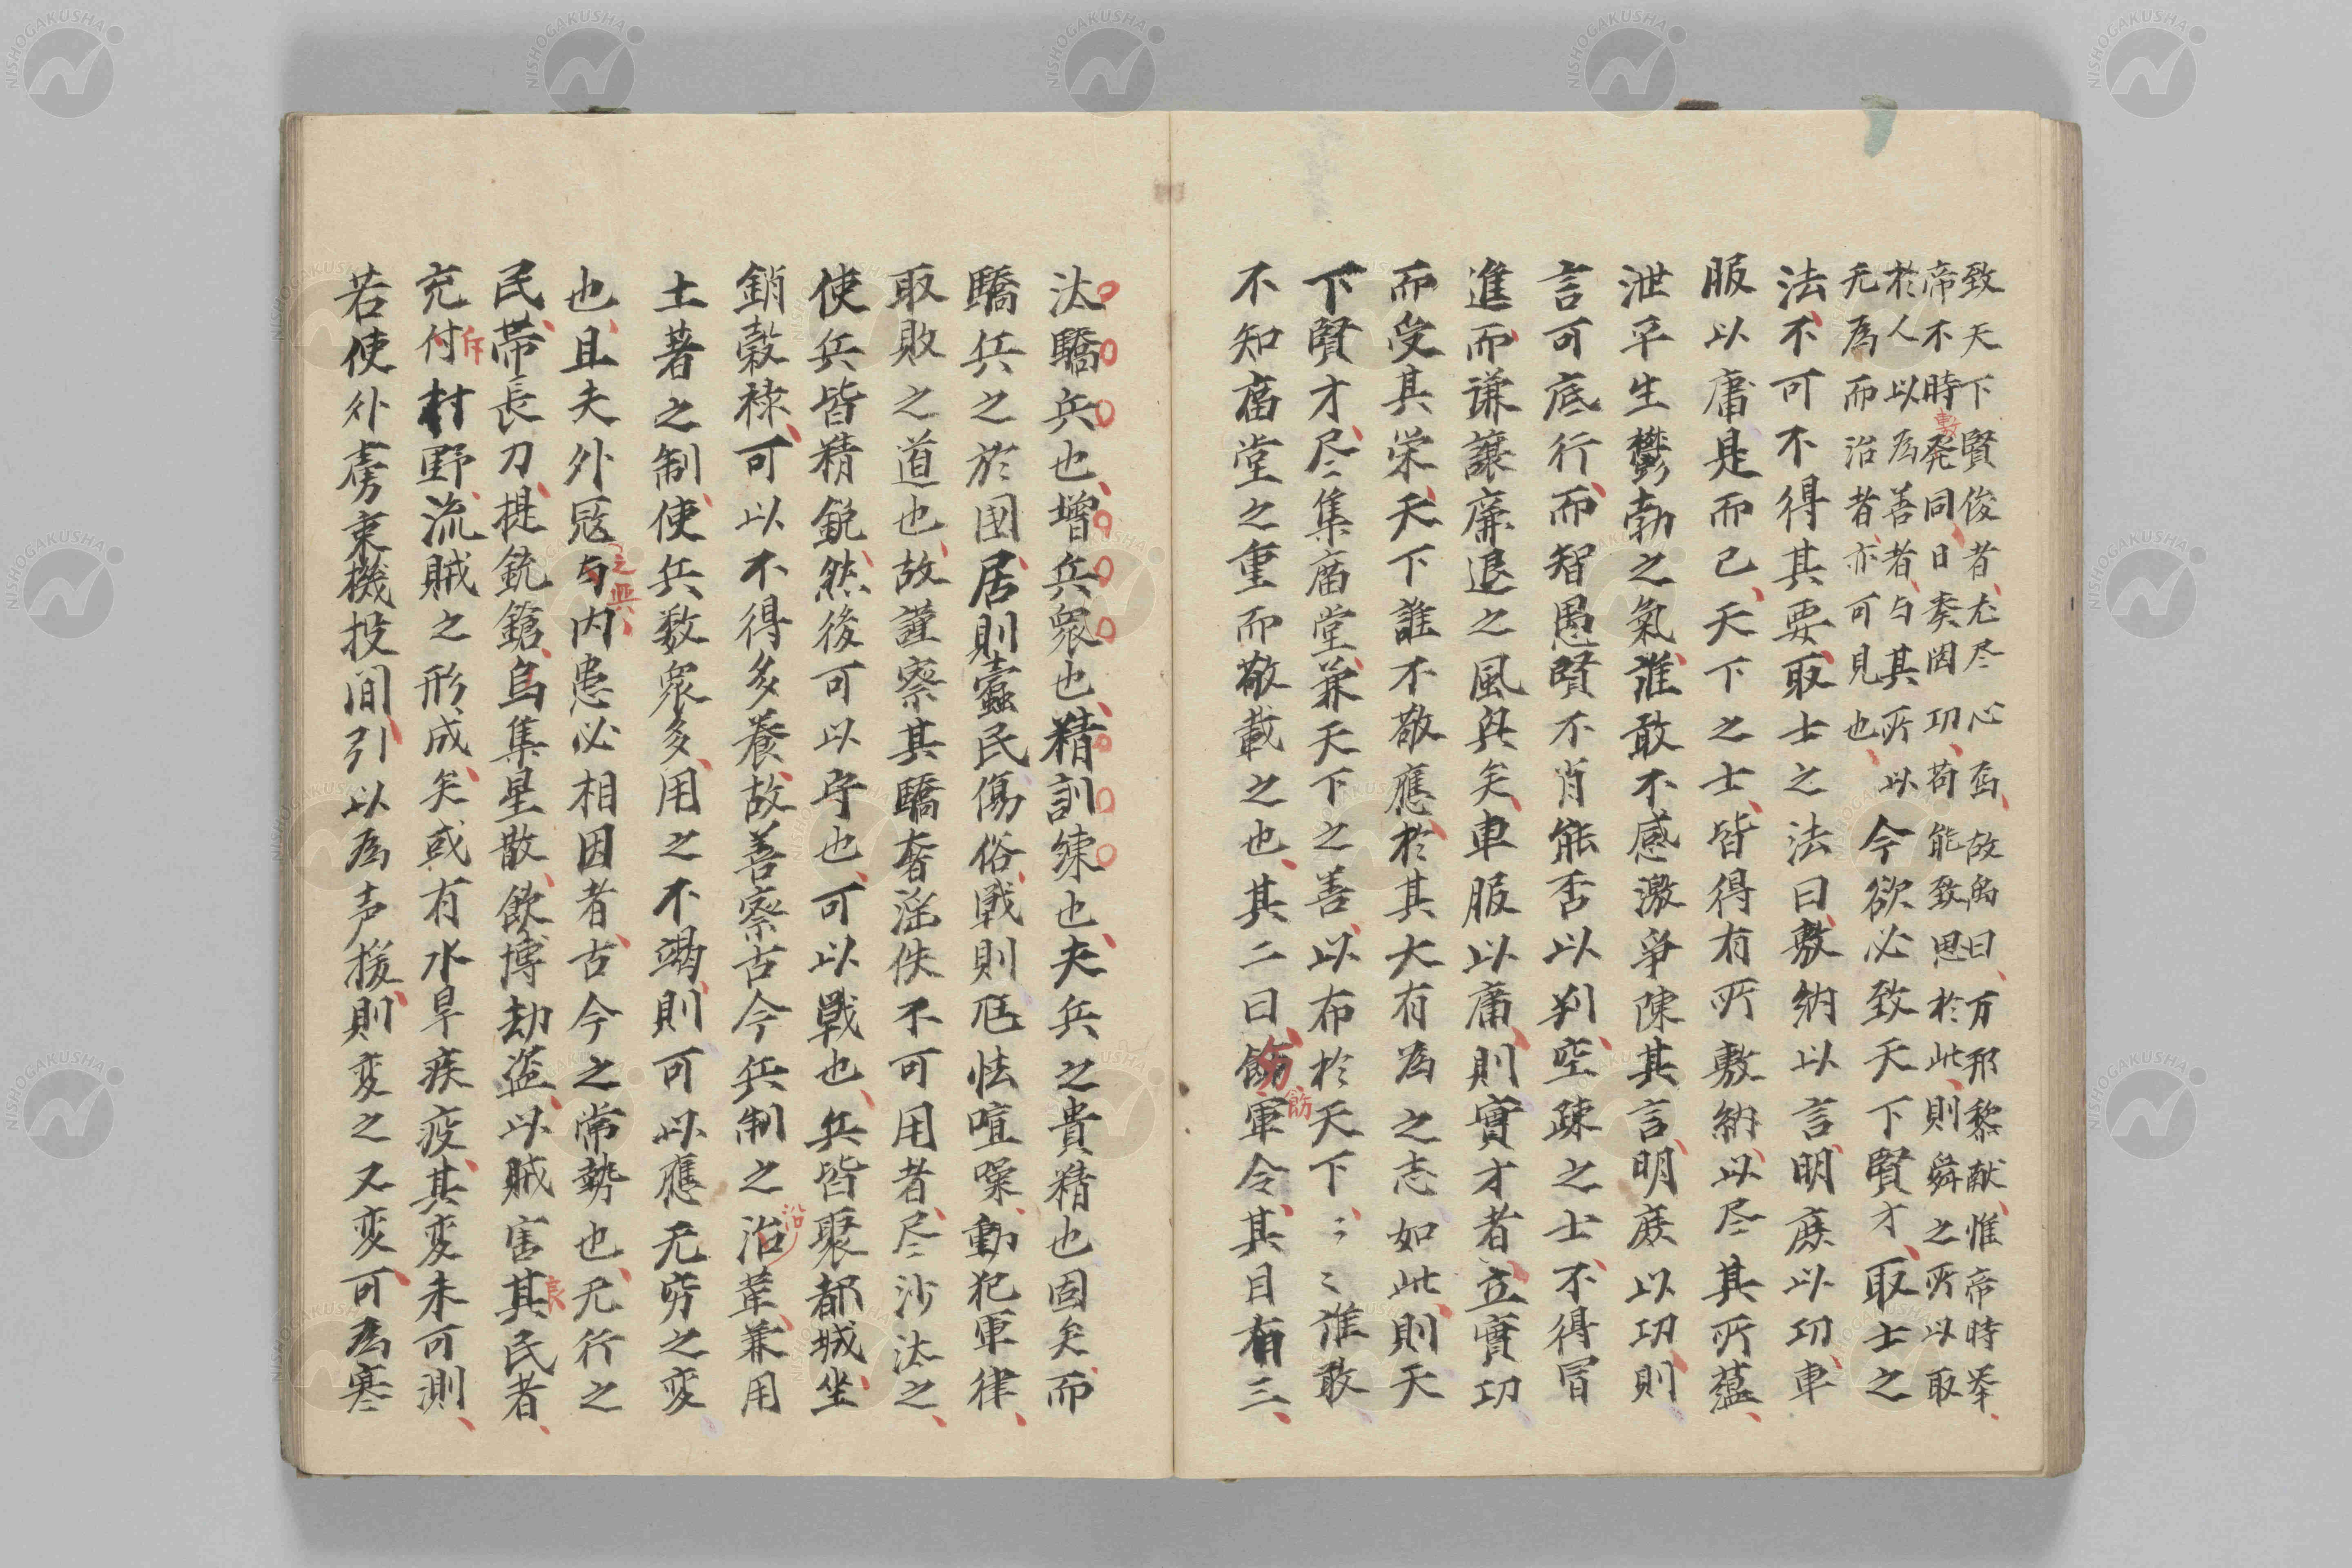 致天下賢俊者、尤尽心焉、故禹曰、万邦黎献、惟帝時挙、
帝不時敷発同、日奏罔功、苟能致思於此、則舜之所以取
於人以為善者、与其所以
无為而治者、亦可見也、
今欲必致天下賢才、取士之
法、不可不得其要、取士之法曰、敷納以言、明庶以功、車
服以庸、是而已、天下之士、皆得有所敷納、以尽其所蘊、
泄平生鬱勃之氣、誰敢不感激爭陳其言、明庶以功、則
言可底行、而智愚賢不肖能否以判、空疎之士、不得冒
進、而謙譲廉退之風興矣、車服以庸、則實才者、立實功
而受其栄、天下誰不敬應、於其大有為之志如此、則天
下賢才、尽集廟堂、兼天下之善、以布於天下、〻〻〻誰敢
不知廟堂之重、而敬載之也、其二曰飭飭軍令、其目有三、
汰驕兵也、增兵衆也、精訓練也、夫兵之貴精也固矣、而
驕兵之於國、居則蠹民傷俗、戦則尫怯喧噪、動犯軍律、
取敗之道也、故謹察其驕奢淫佚不可用者、尽沙汰之、
使兵皆精鋭、然後可以守也、可以戰也、兵皆聚都城、坐
銷穀禄、可以不得多養、故善察古今兵制之治沿革、兼用
土著之制、使兵数衆多、用之不竭、則可以應无窮之変
也、且夫外冦与之與内患必相因者、古今之常勢也、无行之
民、帯長刀、提銃鎗、烏集星散、飲博劫盗、以賊害其良民者、
充付斥村野、流賊之形成矣、或有水旱疾疫、其変未可測、
若使外虜乗機投間、引以為声援、則変之又変、可為寒